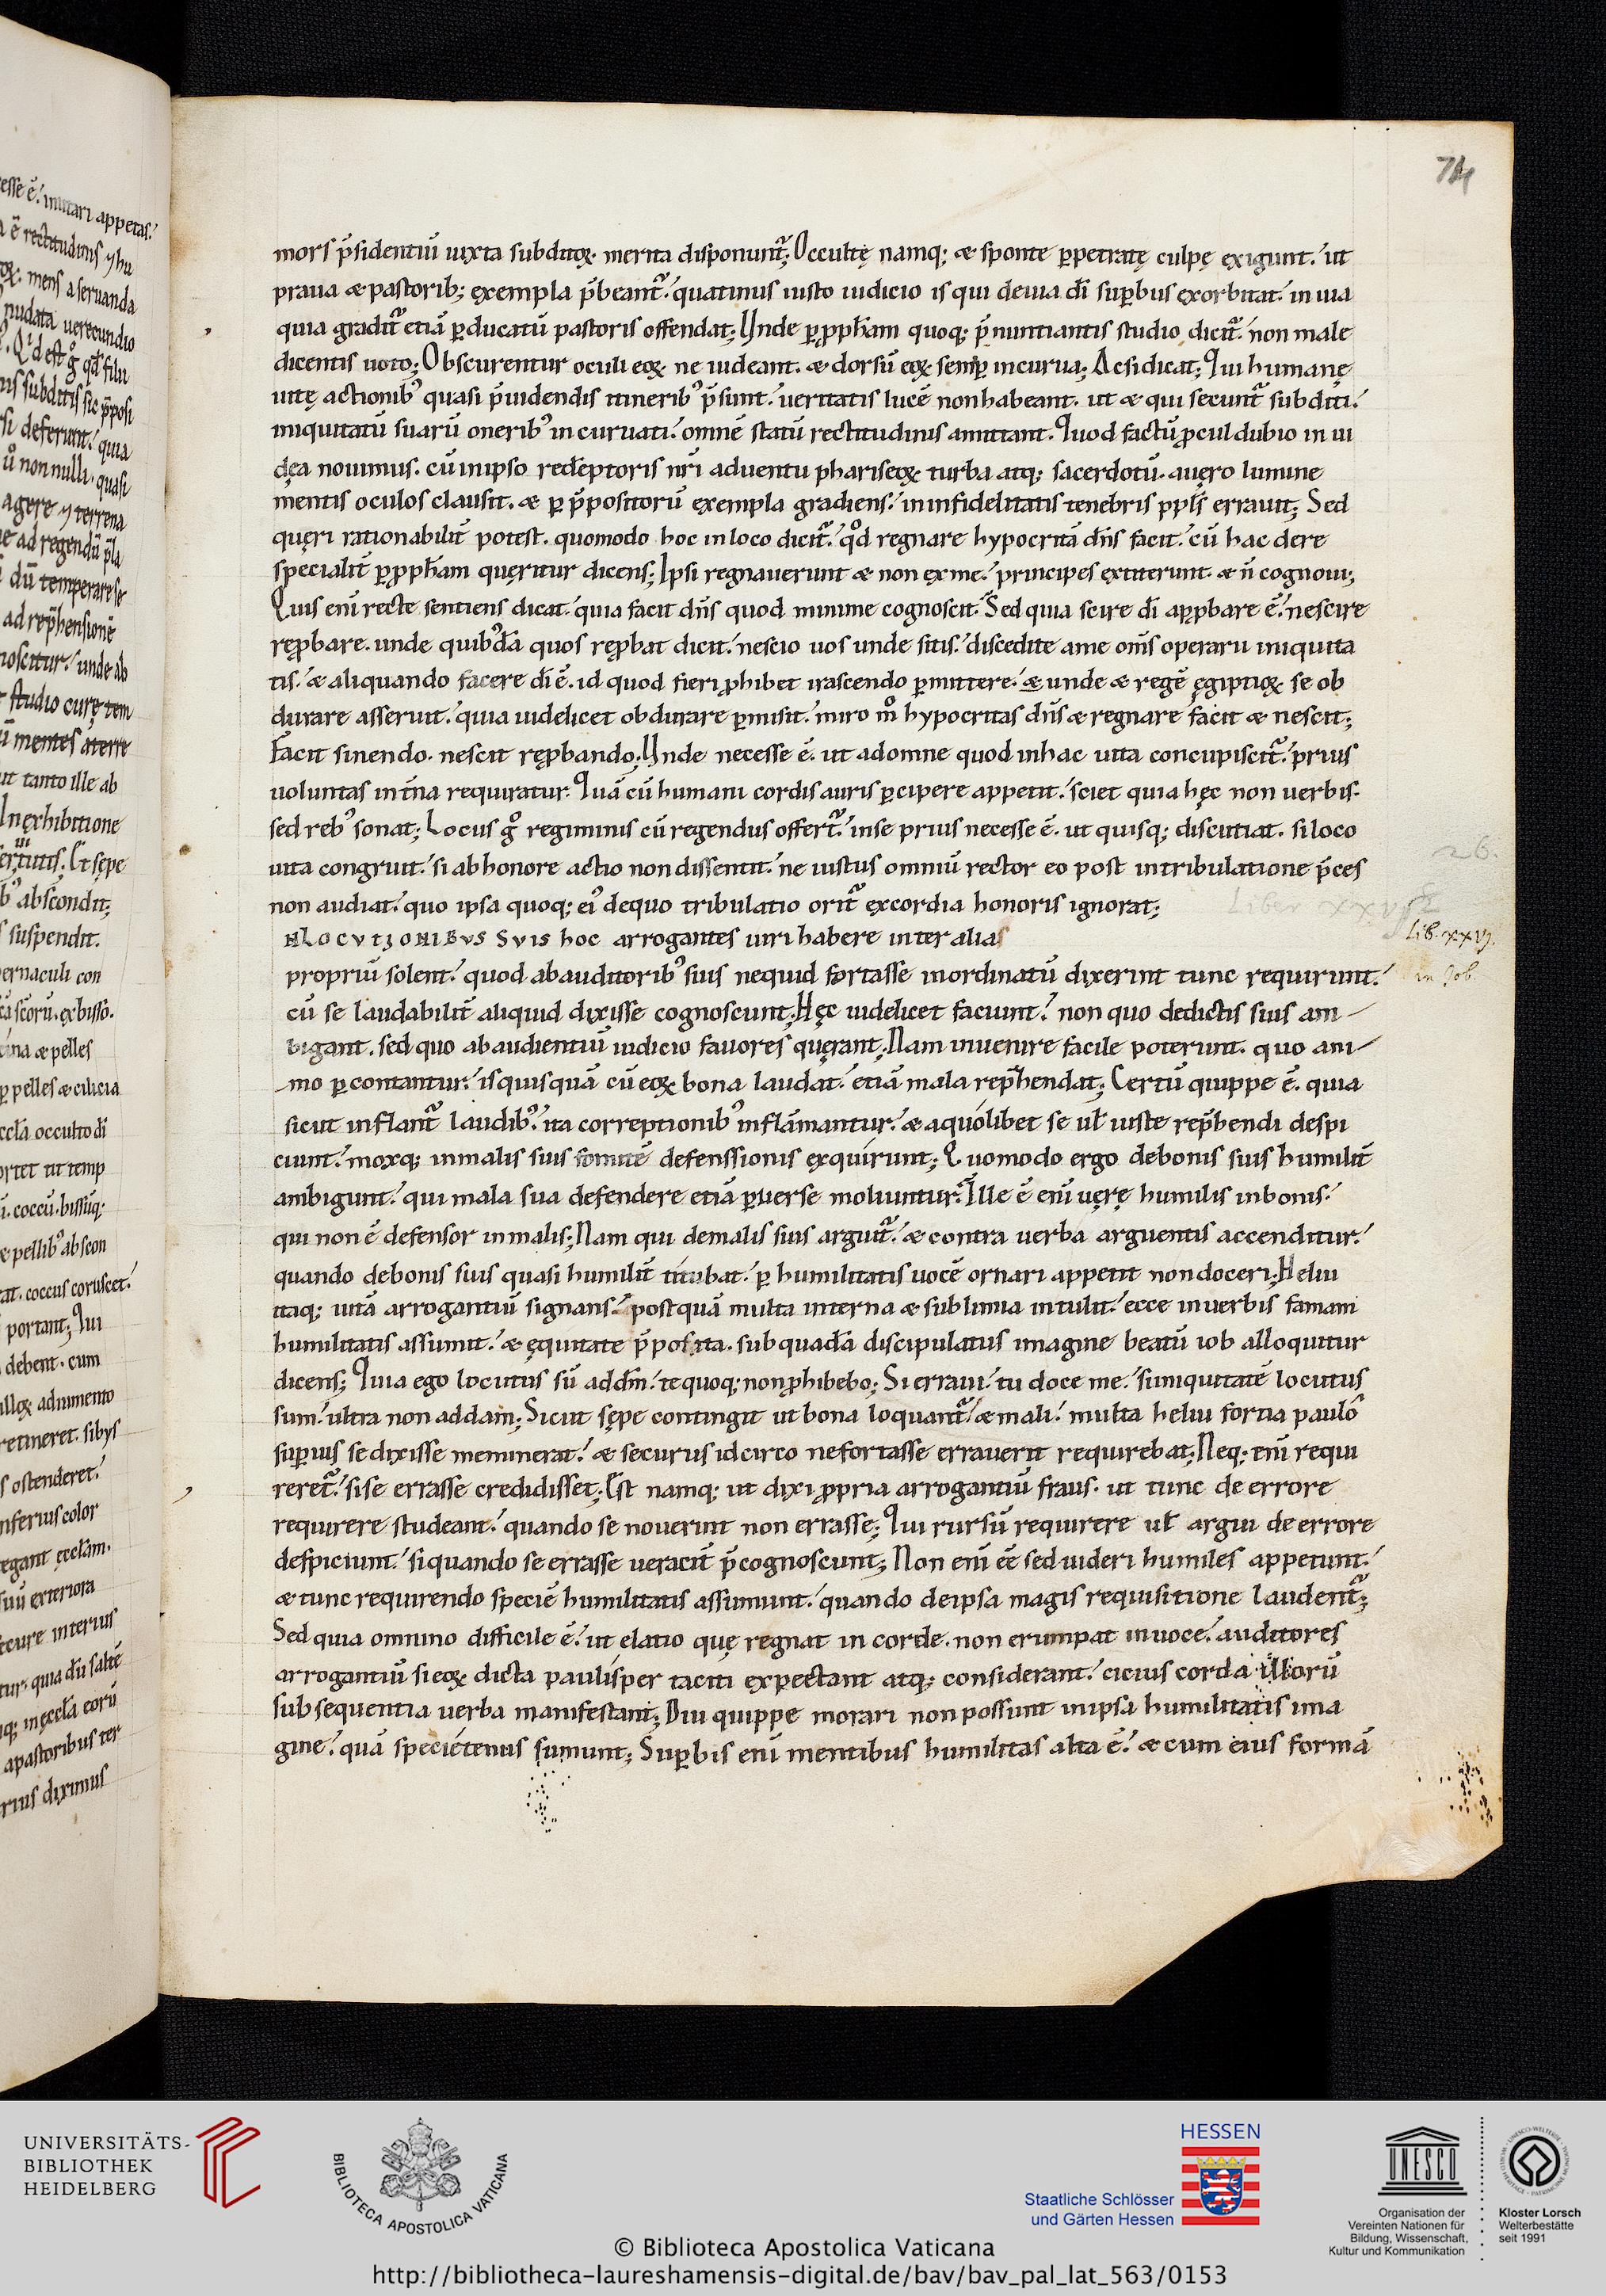 74
mors p̄sidentiū iuxta subditoꝝ. merita disponunt᷑; Occultę namq; æ sponte ꝑpetratę culpę exigunt. ut
praua æ pastorib; exempla p̄beant᷑. quatinus iusto iudicio is qui deuia dī suꝑbus exorbitat. in uia
quia gradit᷑ etiā ꝑ ducatū pastoris offendat; Unde ꝑ ꝓph̄am quoq; p̄nuntiantis studio dicit᷑. non male
dicentis uoto; Obscurentur oculi eoꝝ ne uideant. æ dorsū eoꝝ semꝑ incurua; Ac si dicat; Qui humanę
uitę actionib᷒ quasi p̄uidendis itinerib᷒ p̄sunt. ueritatis lucē non habeant. ut æ qui secunt᷑ subditi.
iniquitatū suarū onerib᷒ incuruati. omnē statū rectitudinis amittant. Quod factū ꝓcul dubio in iu
dęa nouimus. cū in ipso redēptoris nr̄i aduentu phariseoꝝ turba atq; sacerdotū. a uęro lumine
mentis oculos clausit. æ ꝑ p̄positorū exempla gradiens. in infidelitatis tenebris ppl̄s errauit; Sed
quęri rationabilit̄ potest. quomodo hoc in loco dicit᷑. qd̊ regnare hypocritā dn̄s facit. cū hac de re
specialit̄ ꝑ ꝓph̄am quęritur dicens; Ipsi regnauerunt æ non ex me. principes extiterunt. æ n̄ cognoui;
Quis enī recte sentiens dicat. quia facit dn̄s quod minime cognoscit. Sed quia scire dī apꝓbare ē. nescire
reꝓbare. unde quib᷒dā quos reꝓbat dicit. nescio uos unde sitis. discedite a me om̄s operarii iniquita
tis. æ aliquando facere dī ē. id quod fieri ꝓhibet irascendo ꝑmittere. æ unde æ regē ęgiptioꝝ se ob
durare asseruit. quia uidelicet obdurare ꝑmisit. miro m̊ hypocritas dn̄s æ regnare facit æ nescit;
Facit sinendo. nescit reꝓbando; Unde necesse ē. ut ad omne quod in hac uita concupiscit᷑. prius
uoluntas int̄na requiratur. Quā cū humani cordis auris ꝑcipere appetit. sciet quia hęc non uerbis.
sed reb᷒ sonat; Locus g̊ regiminis cū regendus offert᷑. in se prius necesse ē. ut quisq; discutiat. si loco
uita congruit. si ab honore actio non dissentit. ne iustus omniū rector eo post in tribulatione p̄ces
non audiat. quo ipsa quoq; ei᷒ de quo tribulatio orit᷑ exordia honoris ignorat;
26.
Liber xxvi
NLOCUTIONIBUS SUIS hoc arrogantes uiri habere inter alias
Lib. xxvj.
propriū solent. quod ab auditorib᷒ suis ne quid fortasse inordinatū dixerint tunc requirunt.
in Job.
cū se laudabilit̄ aliquid dixisse cognoscunt; Hęc uidelicet faciunt. non quo de dictis suis am
bigant. sed quo ab audientiū iudicio fauores quęrant; Nam inuenire facile poterunt. quo ani
mo ꝑcontantur. is quisquā cū eoꝝ bona laudat. etiā mala rep̄hendat; Certū quippe ē. quia
sicut inflant᷑ laudib᷒. ita correptionib᷒ inflāmantur. æ a quolibet se ul̄ iuste rep̄hendi despi
ciunt. moxq; in malis suis fomitē defenssionis exquirunt; Quomodo ergo de bonis suis humilit̄
ambigunt. qui mala sua defendere etiā ꝑuerse moliuntur. Ille ē enī uęrę humilis in bonis.
qui non ē defensor in malis; Nam qui de malis suis arguit᷑. æ contra uerba arguentis accenditur.
quando de bonis suis quasi humilit̄ titubat. ꝑ humilitatis uocē ornari appetit non doceri; Heliu
itaq; uitā arrogantiū signans. postquā multa interna æ sublimia intulit. ecce in uerbis famam
humilitatis assumit. æ ęquitate p̄posita. sub quadā discipulatus imagine beatū iob alloquitur
dicens; Quia ego locutus sū ad dm̄. te quoq; non ꝓhibebo; Si erraui. tu doce me. si iniquitatē locutus
sum. ultra non addam; Sicut sępe contingit ut bona loquant᷑ æ mali. multa heliu fortia paulo
suꝑius se dixisse meminerat. æ securus idcirco ne fortasse errauerit requirebat; Neq; enī requi
reret᷑. si se errasse credidisset; Est namq; ut dixi ꝓpria arrogantiū fraus. ut tunc de errore
requirere studeant. quando se nouerint non errasse; Qui rursū requirere ul̄ argui de errore
despiciunt. si quando se errasse ueracit̄ p̄cognoscunt; Non enī eē sed uideri humiles appetunt.
æ tunc requirendo speciē humilitatis assumunt. quando de ipsa magis requisitione laudent᷑;
Sed quia omnino difficile ē. ut elatio quę regnat in corde. non erumpat in uoce. auditores
arrogantiū si eoꝝ dicta paulisper taciti expectant atq; considerant. cicius corda illorū
subsequentia uerba manifestant; Diu quippe morari non possunt in ipsa humilitatis ima
gine. quā specietenus sumunt; Suꝑbis enī mentibus humilitas alta ē. æ cum eius formā
UNIVERSITÄTS-
BIBLIOTHEK
HEIDELBERG
BIBLIOTECA APOSTOLICA VATICANA
HESSEN
Staatliche Schlösser
und Gärten Hessen
UNESCO
Organisation der
Vereinten Nationen für
Bildung, Wissenschaft,
Kultur und Kommunikation
Kloster Lorsch
Welterbestätte
seit 1991
© Biblioteca Apostolica Vaticana
http://bibliotheca-laureshamensis-digital.de/bav/bav_pal_lat_563/0153